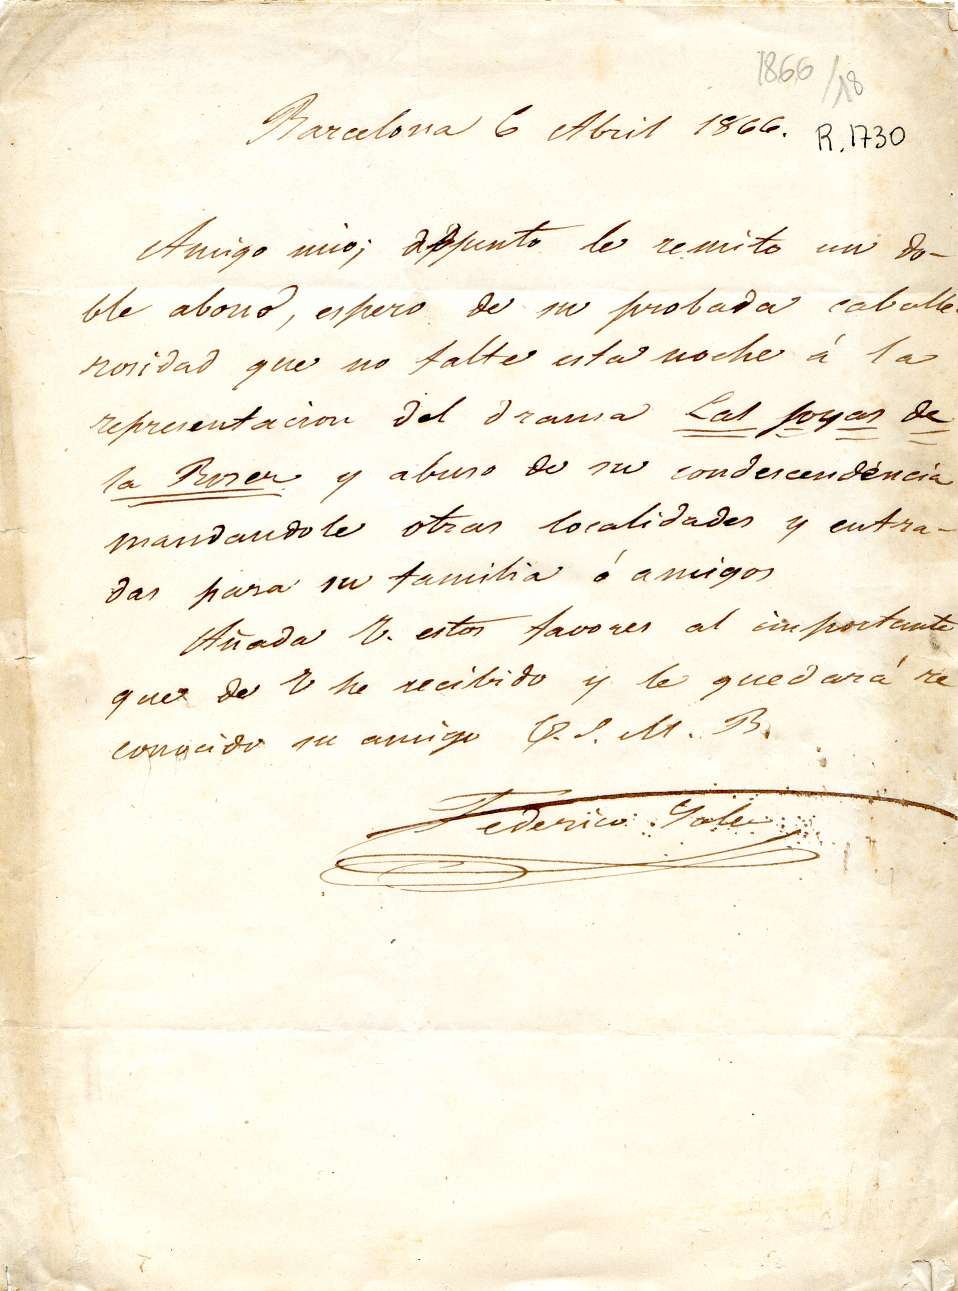 1866/18
Barcelona 6 Abril 1866.
R. 1730
Amigo mio; adjunto le remito un do-
ble abono, espero de su probada caballe-
rosidad que no falte esta noche á la
representacion del drama Las joyas de
la Roser y abuso de su condescendéncia
mandandole otras localidades y entra-
das para su familia ó amigos
Añada V. estos favores al importante
que de V he recibido y le quedará re
conocido su amigo Q. S. M. B.
Federico Soler